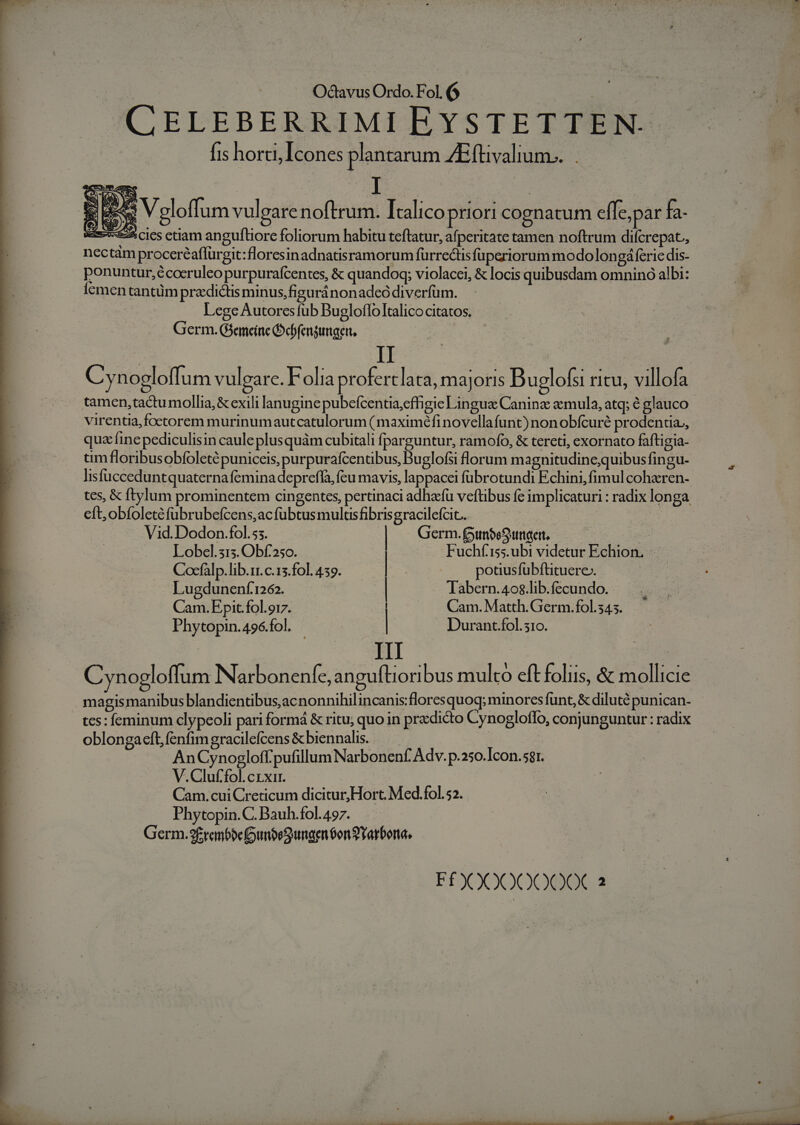 Octavus Ordo. Fol. 6
CELEBERRIMI EYSTETTEN-
ſis horti, Icones plantarum Æſtivalium.
I
BVgloſſum vulgare noſtrum. Italico priori cognatum eſſe, par fa-
cies etiam anguſtiore foliorum habitu teſtatur, aſperitate tamen noſtrum diſcrepat,
nec tàm procerè aſſurgit: flores in adnatis ramorum ſurrectis ſuperiorum modo longâ ſerie dis-
ponuntur, è cœruleo purpuraſcentes, & quandoq; violacei, & locis quibusdam omninò albi:
ſemen tantùm prædictis minus, figurâ non adeò diverſum.
Lege Autores ſub Bugloſſo Italico citatos.
Germ. Gemeine Ochſenzungen.
II
Cynogloſſum vulgare. Folia profert lata, majoris Bugloſsi ritu, villoſa
tamen, tactu mollia, & exili lanugine pubeſcentia, effigie Linguæ Caninæ æmula, atq; è glauco
virentia, fœtorem murinum aut catulorum (maximè ſi novella ſunt) non obſcurè prodentia,
quæ ſine pediculis in caule plus quàm cubitali ſparguntur, ramoſo, & tereti, exornato faſtigia-
tim floribus obſoletè puniceis, purpuraſcentibus, Bugloſsi florum magnitudine, quibus ſingu-
lis ſuccedunt quaterna ſemina depreſſa, ſeu mavis, lappacei ſubrotundi Echini, ſimul cohæren-
tes, & ſtylum prominentem cingentes, pertinaci adhæſu veſtibus ſe implicaturi: radix longa
eſt, obſoletè ſubrubeſcens, ac ſubtus multis fibris gracileſcit.
Vid. Dodon. fol. 53.
Lobel. 313. Obſ. 250.
Coeſalp. lib. 11. c. 13. fol. 439.
Lugdunenſ. 1262.
Cam. Epit. fol. 917.
Phytopin. 496. fol.
Germ. Hundszungen.
Fuchſ. 155. ubi videtur Echion
potius ſubſtituere.
Tabern. 408. lib. ſecundo.
Cam. Matth. Germ. fol. 343.
Durant. fol. 310.
III
Cynogloſſum Narbonenſe, anguſtioribus multò eſt foliis, & mollicie
magis manibus blandientibus, ac nonnihil incanis: flores quoq; minores ſunt, & dilutè punican-
tes: ſeminum clypeoli pari formâ & ritu, quo in prædicto Cynogloſſo, conjunguntur: radix
oblonga eſt, ſenſim gracileſcens & biennalis.
An Cynogloſſ. puſillum Narbonenſ. Adv. p. 250. Icon. 581.
V. Cluſ. fol. CLXII.
Cam. cui Creticum dicitur, Hort. Med. fol. 52.
Phytopin. C. Bauh. fol. 497.
Germ. Frembde Hundszungen von Narbona.
Ff)()()()()()()( 2